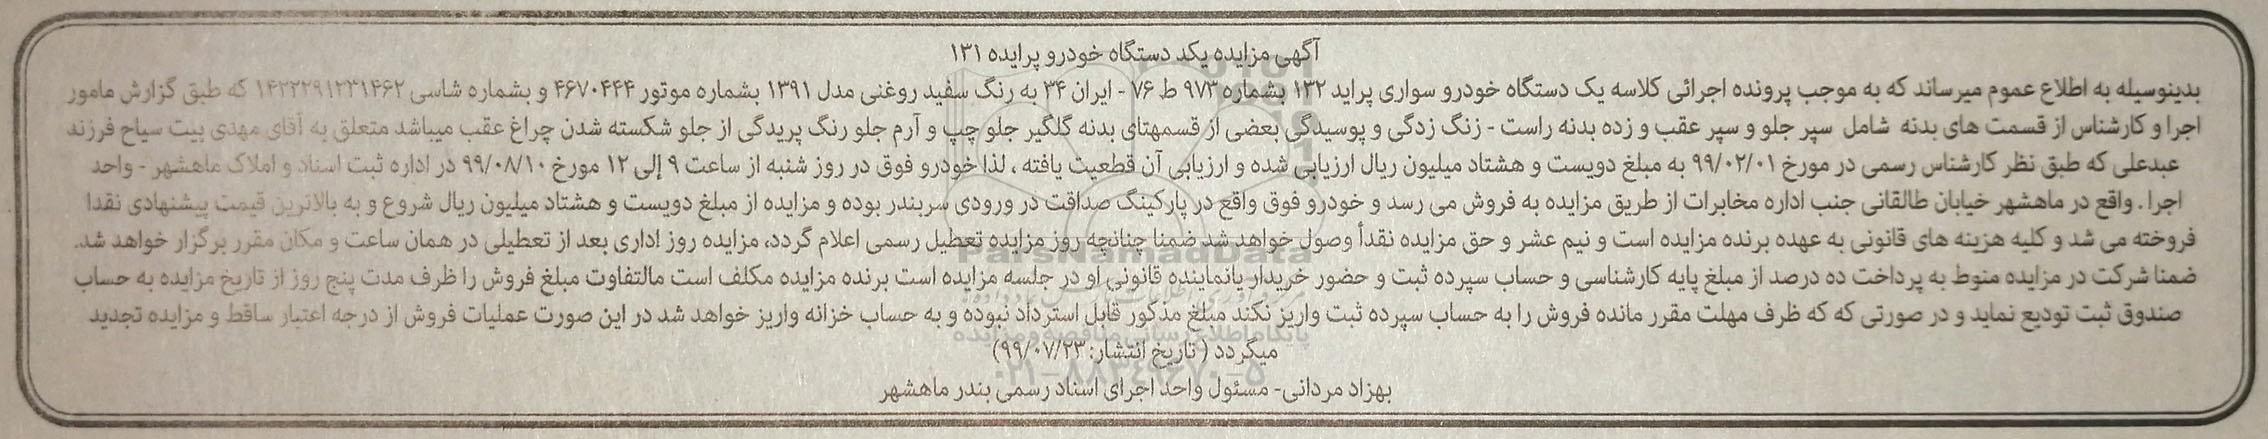 آگهی مزایده یکد دستگاه خودرو پرایده ۱۳۱
بدینوسیله به اطلاع عموم میرساند که به موجب پرونده اجرائی کلاسه یک دستگاه خودرو سواری پراید ۱۳۲ بشماره ۹۷۳ ط ۷۶ - ایران ۳۴ به رنگ سفید روغنی مدل ۱۳۹۱ بشماره موتور ۴۶۷۰۴۴۴ و بشماره شاسی ۱۴۲۲۲۹۱۲۳۱۴۶۲ که طبق گزارش مامور
اجرا و کارشناس از قسمت های بدنه شامل سپر جلو و سپر عقب و زده بدنه راست - زنگ زدگی و پوسیدگی بعضی از قسمهتای بدنه گلگیر جلو چپ و آرم جلو رنگ پریدگی از جلو شکسته شدن چراغ عقب میباشد متعلق به آقای مهدی بیت سیاح فرزند
عبدعلی که طبق نظر کارشناس رسمی در مورخ ۹۹/۰۲/۰۱ به مبلغ دویست و هشتاد میلیون ریال ارزیابی شده و ارزیابی آن قطعیت یافته ، لذا خودرو فوق در روز شنبه از ساعت ۹ إلی ۱۲ مورخ ۹۹/۰۸/۱۰ در اداره ثبت اسناد و املاک ماهشهر - واحد
اجرا . واقع در ماهشهر خیابان طالقانی جنب اداره مخابرات از طریق مزایده به فروش می رسد و خودرو فوق واقع در پارکینگ صداقت در ورودی سربندر بوده و مزایده از مبلغ دویست و هشتاد میلیون ریال شروع و به بالاترین قیمت پیشنهادی نقدا
فروخته می شد و کلیه هزینه های قانونی به عهده برنده مزایده است و نیم عشر و حق مزایده نقدأ وصول خواهد شد ضمنا چنانچه روز مزایده تعطیل رسمی اعلام گردد، مزایده روز اداری بعد از تعطیلی در همان ساعت و مکان مقرر برگزار خواهد شد.
ضمنا شرکت در مزایده منوط به پرداخت ده درصد از مبلغ پایه کارشناسی و حساب سپرده ثبت و حضور خریدار یانماینده قانونی او در جلسه مزایده است برنده مزایده مکلف است مالتفاوت مبلغ فروش را ظرف مدت پنج روز از تاریخ مزایده به حساب
صندوق ثبت تودیع نماید و در صورتی که که ظرف مهلت مقرر مانده فروش را به حساب سپرده ثبت واریز نکند مبلغ مذکور قابل استرداد نبوده و به حساب خزانه واریز خواهد شد در این صورت عملیات فروش از درجه اعتبار ساقط و مزایده تجدید
میگردد ( تاریخ انتشار: ۹۹/۰۷/۲۳)
بهزاد مردانی- مسئول واحد اجرای اسناد رسمی بندر ماهشهر
ParsNamadData
پایگاه اطلاع رسانی مناقصه و مزایده
۰۲۱-۸۸۳۴۹۶۷۰-۵